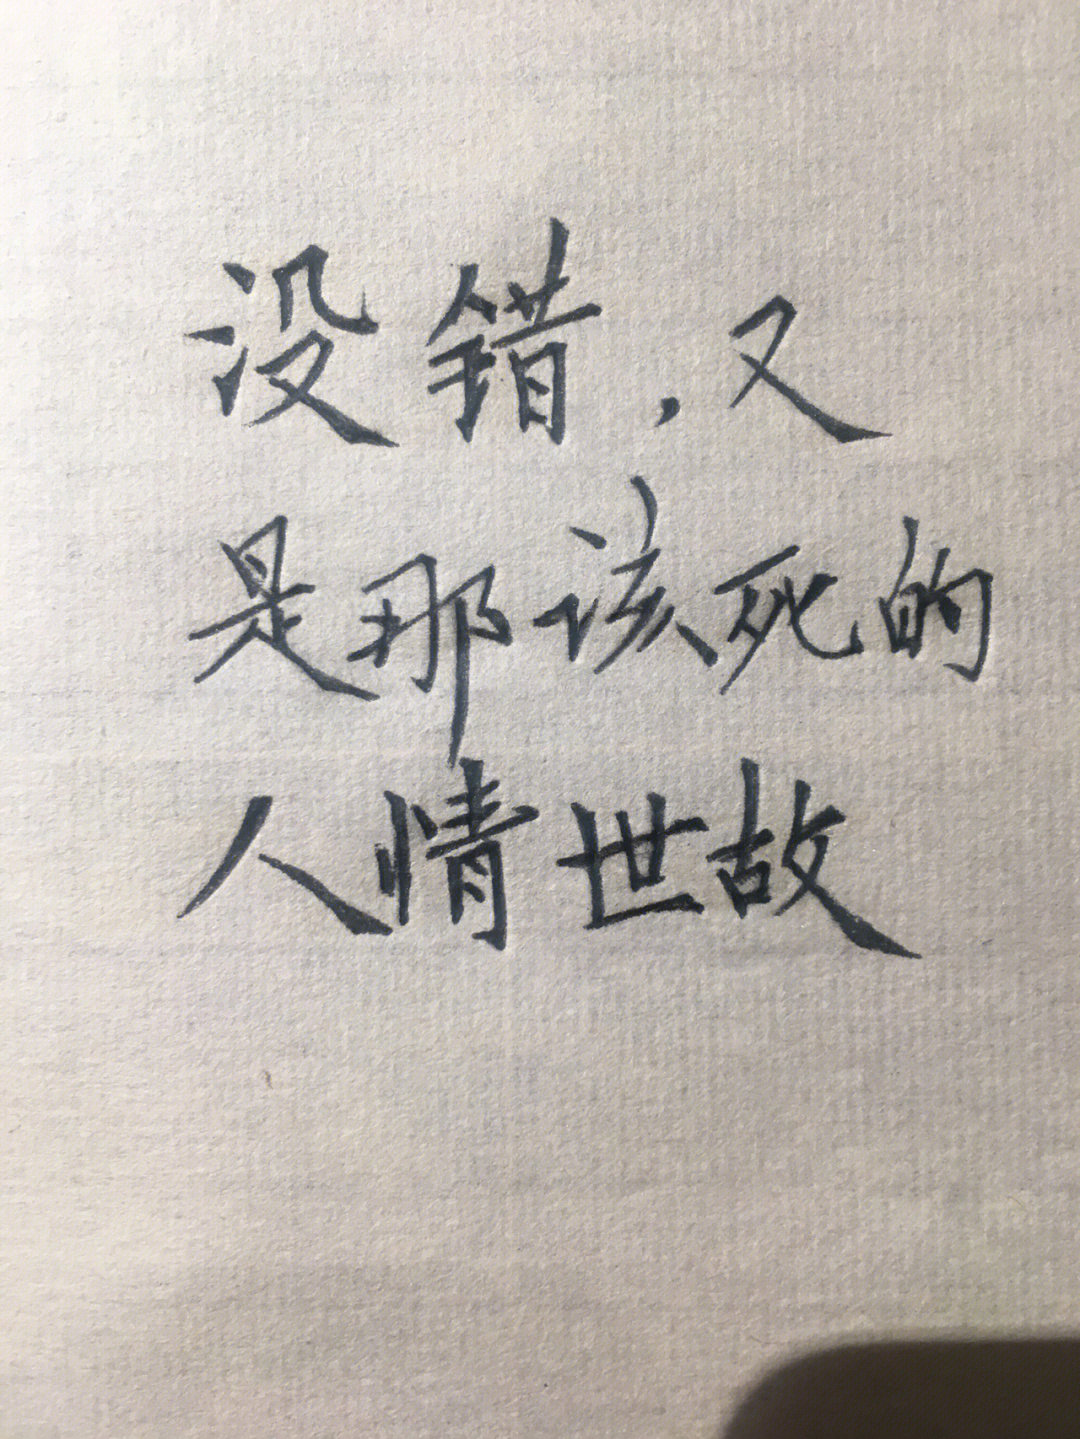 没错,又
是那该死的
人情世故